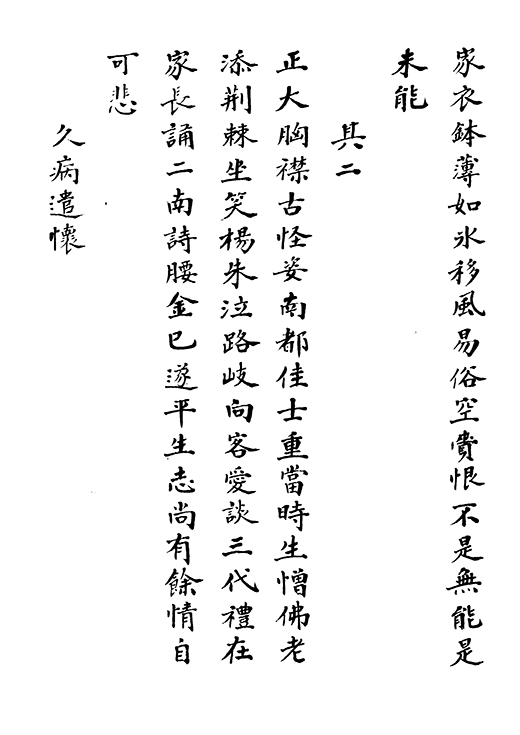 家衣鉢薄如氷移風易俗空賷恨不是無能是
未能
其二
正大胸襟古怪姿南都佳士重當時生憎佛老
添荆棘坐笑楊朱泣路岐向客愛談三代禮在
家長誦二南詩腰金已遂平生志尚有餘情自
可悲
久病遣懷